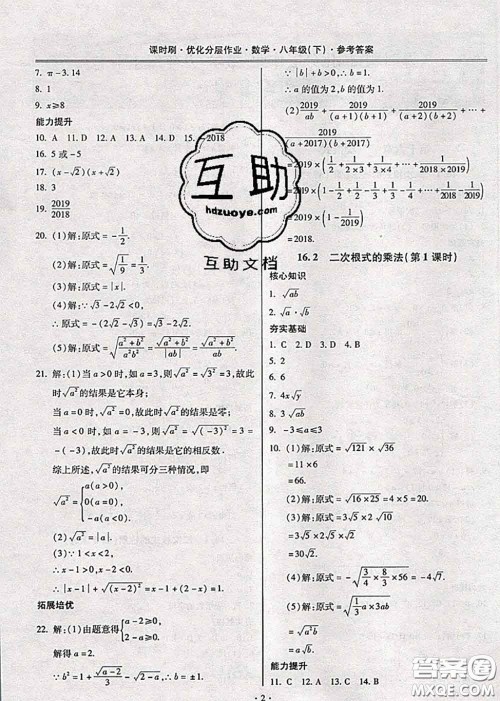 课时刷·优化分层作业·数学·八年级(下)·参考答案
7. π-3.14
8. 1
9. x≥8
能力提升
10. A 11. D 12. A 13. A 14. D 15. -2018
16. 5 或 -5
17. (x-√2)(x+√2)
18. 3
19. 2019/2018
20. (1)解:原式=-1/2.
(2)解:原式=√(1/9)=1/3.
(3)解:原式=|s|.
(4)解:∵√3-2√2<0,
∴原式=-(2√3-√2)=√2-√3.
(5)解:原式=√((a²+b²)/(a²b²))=√(a²+b²)/|ab|=√(a²+b²)
21. 解:(1)当 a>0 时,如 a=3,则√a²=√3²=3,故此
时√a²的结果是它本身;
当 a=0 时,√a²=0,故此时√a²的结果是零;
当 a<0 时,如 a=-3,则√a²=√(-3)²=3,故此
时√a²的结果是它的相反数.
综上所述,√a²的结果可分三种情况,即
√a²={a(a>0), 0(a=0), -a(a<0).
(2)√a²=|a|.
(3)∵1<x<2,
∴x-1>0,x-2<0.
∴|x-1|+√(x-2)²=x-1+(2-x)=1.
拓展培优
22. 解:(1)由题意得{a-2≥0, 2-a≥0.
解得 a=2.
∴b²=1+√(a-2)/3-√(2-a)=1.
∵|b|+b>0,∴b=1.
∴a 的值为 2,b 的值为 1.
(2)2019/ab+2019/((a+1)(b+1))+2019/((a+2)(b+2))+…+
2019/((a+2017)(b+2017))
=2019×(1/2+1/(2×3)+1/(3×4)+…+1/(2018×2019))
=2019×(1-1/2+1/2-1/3+…+1/2018-1/2019)
=2019×(1-1/2019)
=2018.
16.2 二次根式的乘法(第1课时)
核心知识
1. √ab
2. √a·√b
夯实基础
1. C 2. D 3. C 4. B
5. 2
6. 2
7. 4x√y
8. 3√ab
9. -3≤a≤3
10. (1)解:原式=√121×√36
=11×6
=66.
(2)解:原式=√(16×25)=4×5
=20.
(3)解:原式=√(3/4×8/3×56)=-4√7.
(4)解:原式=√(1/3a×3ab)
=√a²b
=a√b.
能力提升
11. C 12. A 13. C 14. B
·2·
互助
hdzuoye.com
互助文档
答案圈
MXQE.COM